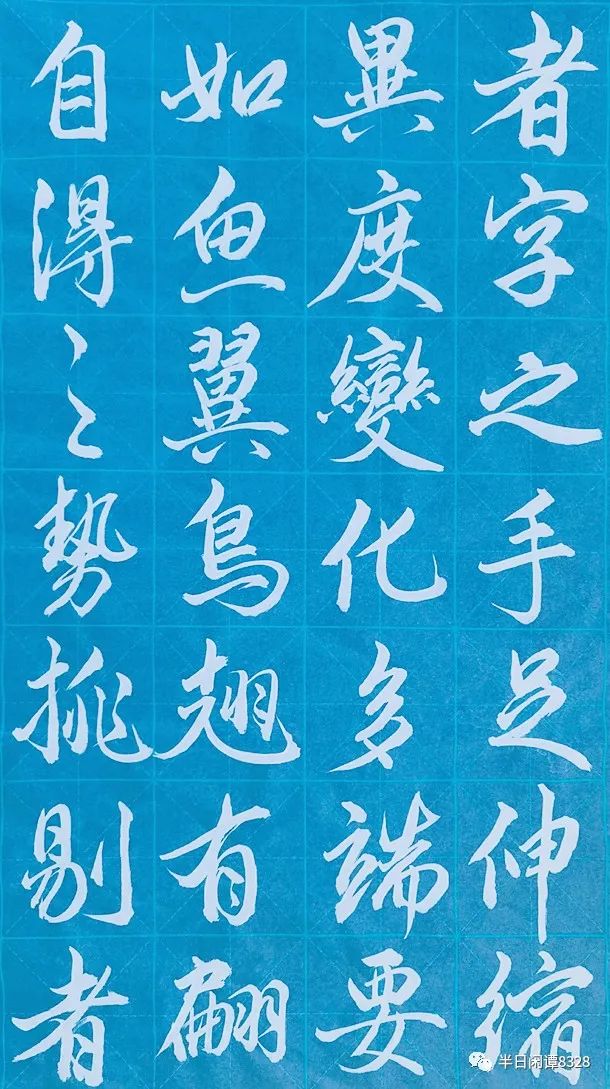 者字之手足伸縮
異度變化多端要
如鱼翼鳥翅有翩
自得之勢挑剔者
半日闲谭8328